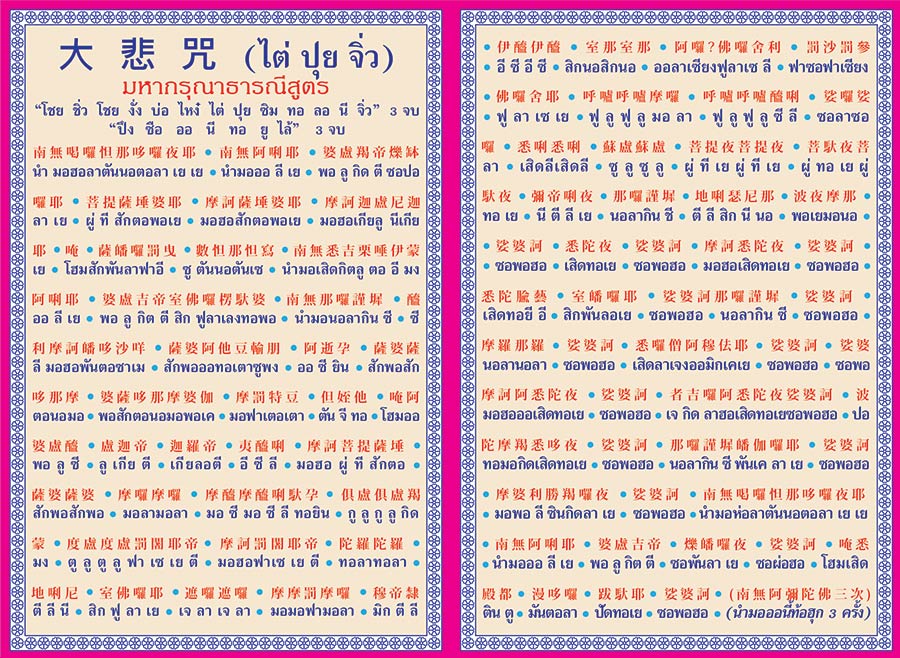 大 悲 咒 (ไต่ ปุย จิ่ว)
มหากรุณาธารณีสูตร
“โซย ชิ่ว โซย งั่ง บ่อ ไหง๋ ไต่ ปุย ซิม ทอ ลอ นี จิ่ว” 3 จบ
“ปึง ซือ ออ นี ทอ ยู ไล้” 3 จบ
南無喝囉怛那哆囉夜耶 • 南無阿唎耶 • 婆盧羯帝爍缽
นำ มอฮอลาตันนอตอลา เย เย • นำมอออ ลี เย • พอ ลู กิต ตี ซอปอ
囉耶 • 菩提薩埵婆耶 • 摩訶薩埵婆耶 • 摩訶迦盧尼迦
ลา เย • ผู่ ที สักตอพอเย • มอฮอสักตอพอเย • มอฮอเกียลู นีเกีย
耶 • 唵 • 薩皤囉罰曳 • 數怛那怛寫 • 南無悉吉栗埵伊蒙
เย • โฮมสักพันลาฟาอี • ซู ตันนอตันเซ • นำมอเสิดกิตลู ตอ อี มง
阿唎耶 • 婆盧吉帝室佛囉楞馱婆 • 南無那囉謹墀 • 醯
ออ ลี เย • พอ ลู กิต ตี สิก ฟูลาเลงทอพอ • นำมอนอลากิน ซี • ซี
利摩訶皤哆沙咩 • 薩婆阿他豆輸朋 • 阿逝孕 • 薩婆薩
ลี มอฮอพันตอซาเม • สักพอออทอเตาซูพง • ออ ซี ยิน • สักพอสัก
哆那摩 • 婆薩哆那摩婆伽 • 摩罰特豆 • 但姪他 • 唵阿
ตอนอมอ • พอสักตอนอมอพอเค • มอฟาเตอเตา • ตัน จี ทอ • โฮมออ
婆盧醯 • 盧迦帝 • 迦羅帝 • 夷醯唎 • 摩訶菩提薩埵 •
พอ ลู ซี • ลู เกีย ตี • เกียลอตี • อี ซี ลี • มอฮอ ผู่ ที สักตอ •
薩婆薩婆 • 摩囉摩囉 • 摩醯摩醯唎馱孕 • 俱盧俱盧羯
สักพอสักพอ • มอลามอลา • มอ ซี มอ ซี ลี ทอยิน • กู ลู กู ลู กิด
蒙 • 度盧度盧罰闍耶帝 • 摩訶罰闍耶帝 • 陀羅陀羅 •
มง • ตู ลู ตู ลู ฟา เซ เย ตี • มอฮอฟาเซ เย ตี • ทอลาทอลา •
地唎尼 • 室佛囉 • 遮囉遮囉 • 摩摩罰摩囉 • 穆帝隸
ตี ลี นี • สิก ฟู ลา เย • เจ ลา เจ ลา • มอมอฟามอลา • มิก ตี ลี
• 伊醯伊醯 • 室那室那 • 阿囉?佛囉舍利 • 罰沙罰參
• อี ซี อี ซี • สิกนอสิกนอ • ออลาเซียงฟูลาเซ ลี • ฟาซอฟาเซียง
• 佛囉舍耶 • 呼嚧呼嚧摩囉 • 呼嚧呼嚧醯唎 • 娑囉娑
• ฟู ลา เซ เย • ฟู ลู ฟู ลู มอ ลา • ฟู ลู ฟู ลู ซี ลี • ซอลาซอ
囉 • 悉唎悉唎 • 蘇盧蘇盧 • 菩提夜菩提夜 • 菩馱夜菩
ลา • เสิดลีเสิดลี • ซู ลู ซู ลู • ผู่ ที เย ผู่ ที เย • ผู่ ทอ เย ผู่
馱夜 • 彌帝唎夜 • 那囉謹墀 • 地唎瑟尼那 • 波夜摩那 •
ทอ เย • นี ตี ลี เย • นอลากิน ซี • ตี ลี สิก นี นอ • พอเยมอนอ •
• 娑婆訶 • 悉陀夜 • 娑婆訶 • 摩訶悉陀夜 • 娑婆訶 •
• ซอพอฮอ • เสิดทอเย • ซอพอฮอ • มอฮอเสิดทอเย • ซอพอฮอ •
悉陀腧藝 • 室皤囉耶 • 娑婆訶那囉謹墀 • 娑婆訶 •
เสิดทอยี อี • สิกพันลอเย • ซอพอฮอ • นอลากิน ซี • ซอพอฮอ •
摩羅那羅 • 娑婆訶 • 悉囉僧阿穆佉耶 • 娑婆訶 • 娑婆
นอลานอลา • ซอพอฮอ • เสิดลาเจงออมิกเคเย • ซอพอฮอ • ซอพอ
摩訶阿悉陀夜 • 娑婆訶 • 者吉囉阿悉陀夜娑婆訶 • 波
มอฮอออเสิดทอเย • ซอพอฮอ • เจ กิด ลาฮอเสิดทอเยซอพอฮอ • ปอ
陀摩羯悉哆夜 • 娑婆訶 • 那囉謹墀皤伽囉耶 • 娑婆訶
ทอมอกิดเสิดทอเย • ซอพอฮอ • นอลากิน ซี พันเค ลา เย • ซอพอฮอ
• 摩婆利勝羯囉夜 • 娑婆訶 • 南無喝囉怛那哆囉夜耶
• มอพอ ลี ซินกิดลา เย • ซอพอฮอ • นำมอห่อลาตันนอตอลา เย เย
• 南無阿唎耶 • 婆盧吉帝 • 爍皤囉夜 • 娑婆訶 • 唵悉
• นำมออ ลี เย • พอ ลู กิต ตี • ซอพันลา เย • ซอผ่อฮอ • โฮมเสิด
殿都 • 漫哆囉 • 跋馱耶 • 娑婆訶 • (南無阿彌陀佛三次)
ติน ตู • มันตอลา • ปัดทอเย • ซอพอฮอ • (นำมอออนี้ท้อฮุก 3 ครั้ง)